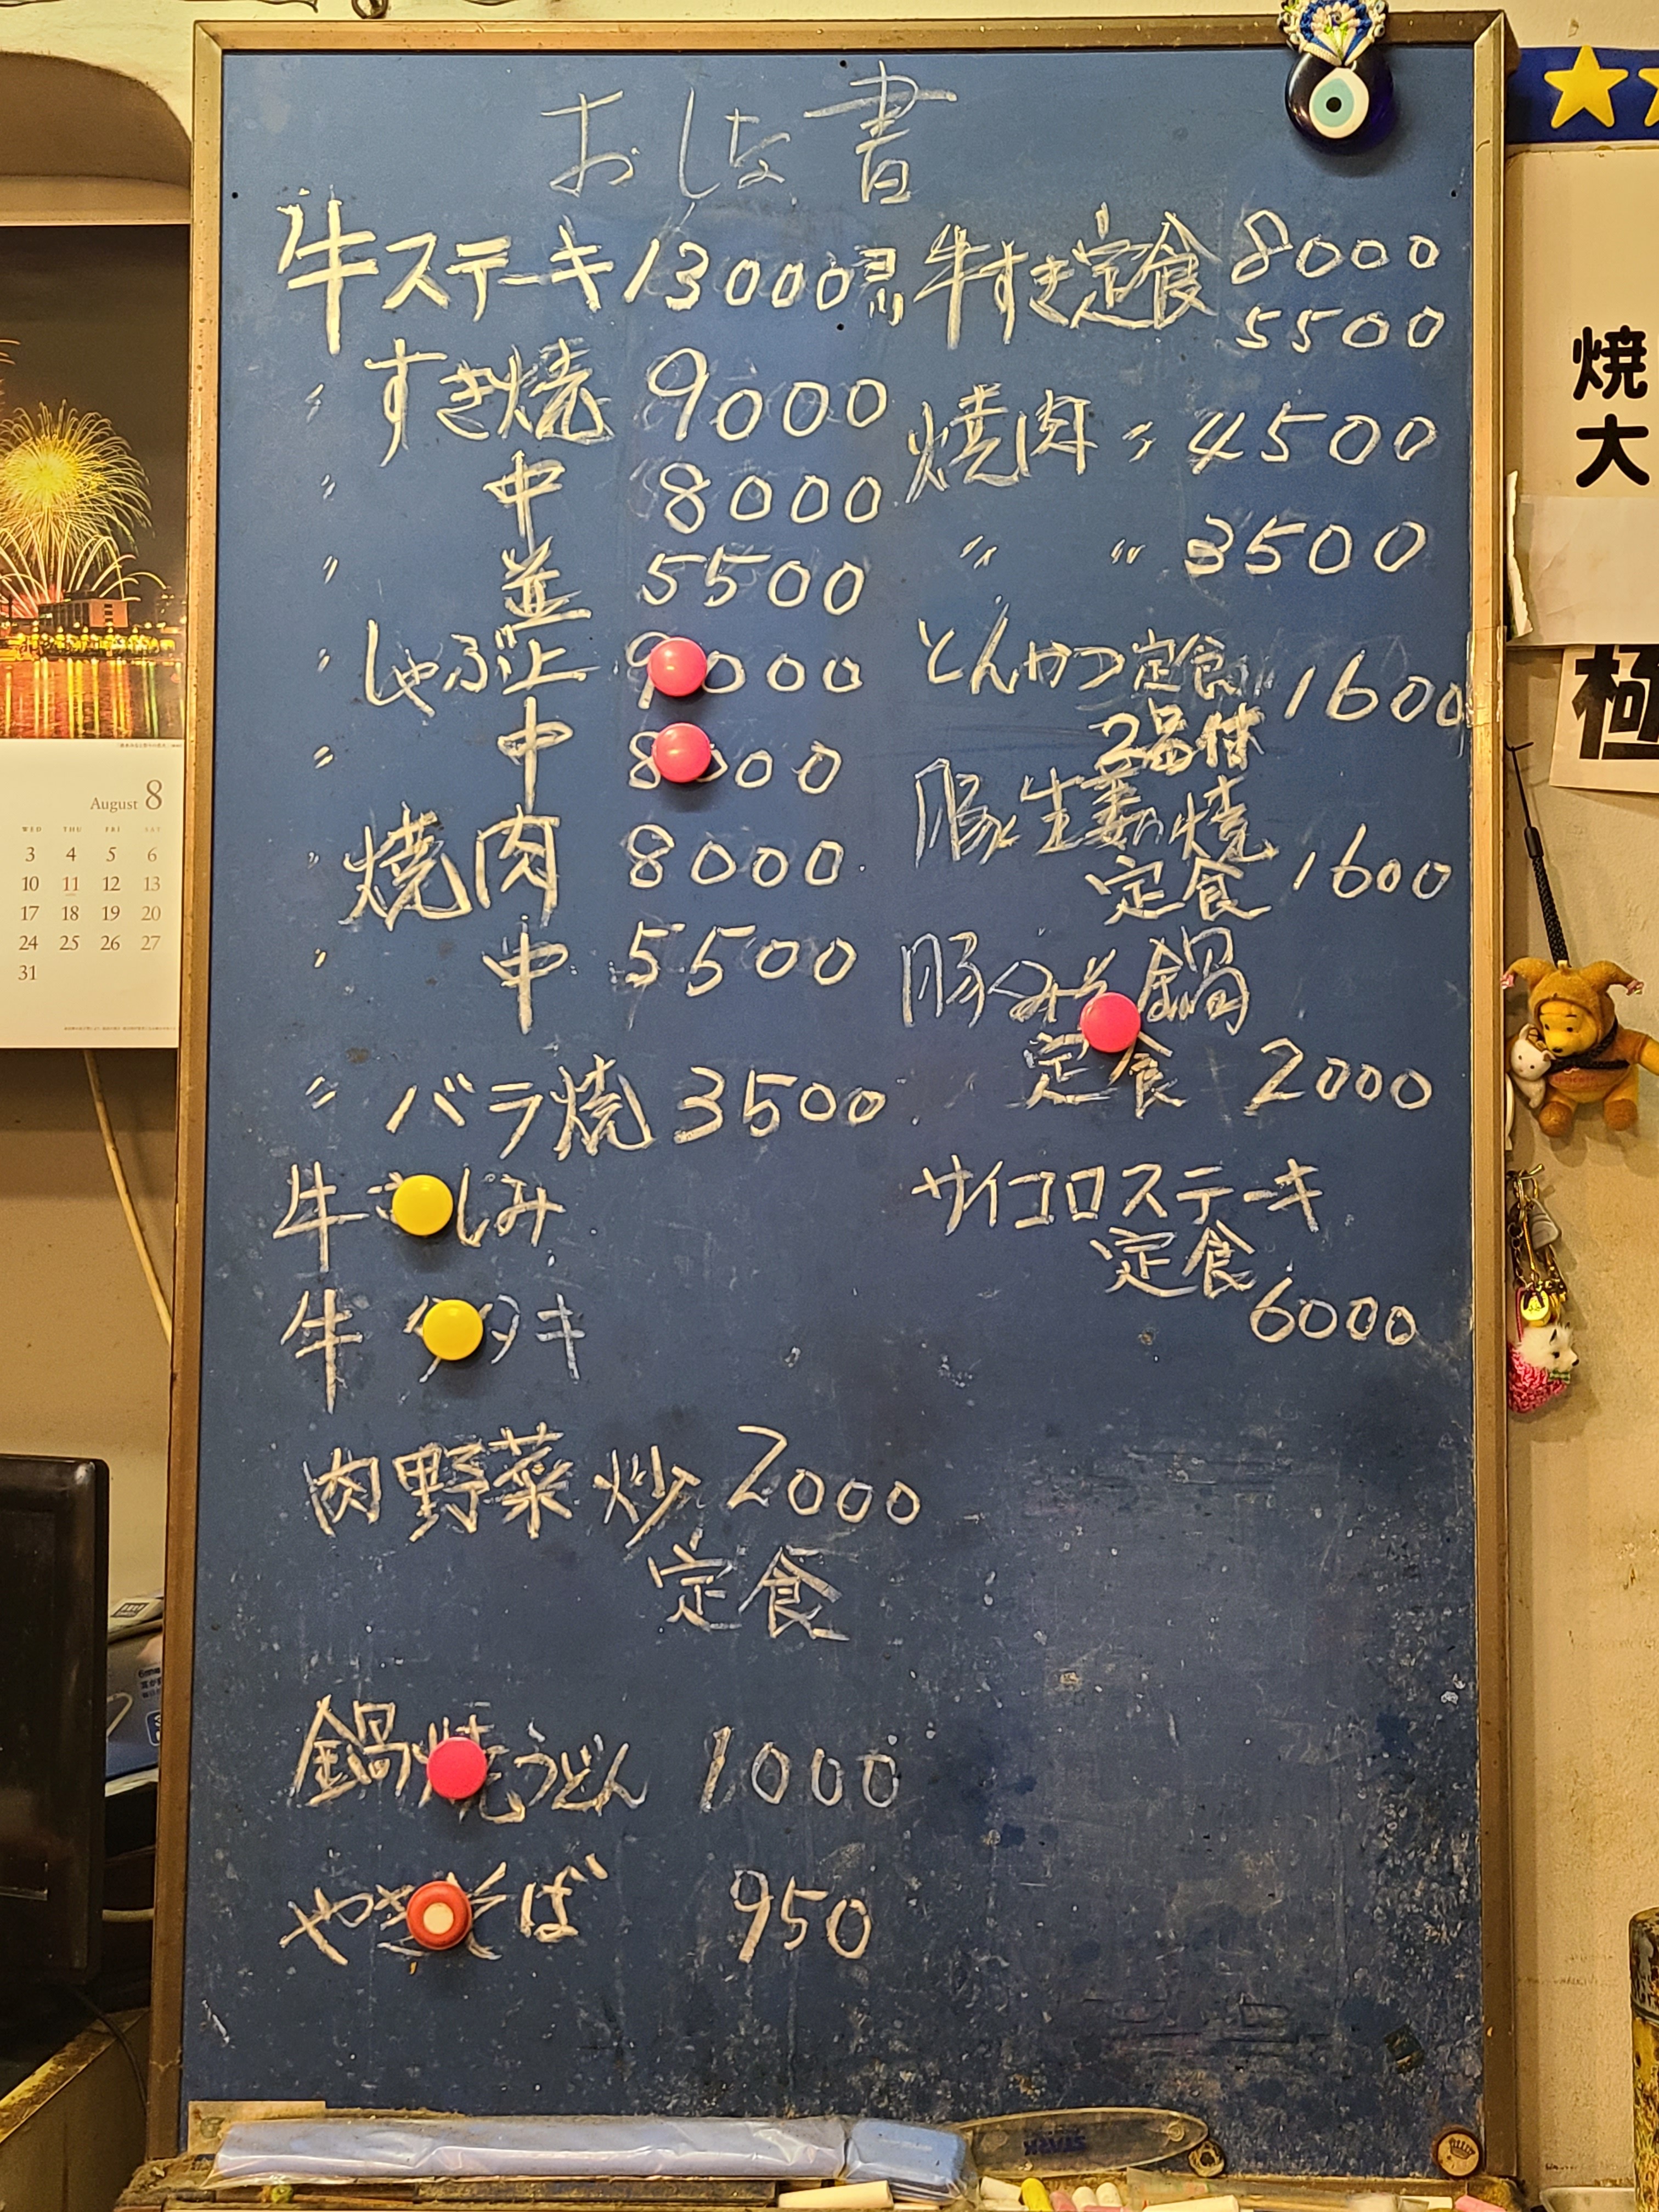 おしな書
牛ステーキ 13000ヨリ
〃 すき焼 9000
〃 中 8000
〃 並 5500
〃 しゃぶ上 9000
〃 中 8000
〃 焼肉 8000
〃 中 5500
〃 バラ焼 3500
牛さしみ
牛タタキ
肉野菜炒 2000
定食
鍋焼うどん 1000
やきそば 950
牛すき定食 8000
5500
焼肉 〃 4500
〃 〃 3500
とんかつ定食 1600
2品付
豚生姜焼
定食 1600
豚みそ鍋
定食 2000
サイコロステーキ
定食
6000
August 8
WED THU FRI SAT
3 4 5 6
10 11 12 13
17 18 19 20
24 25 26 27
31
焼
大
極